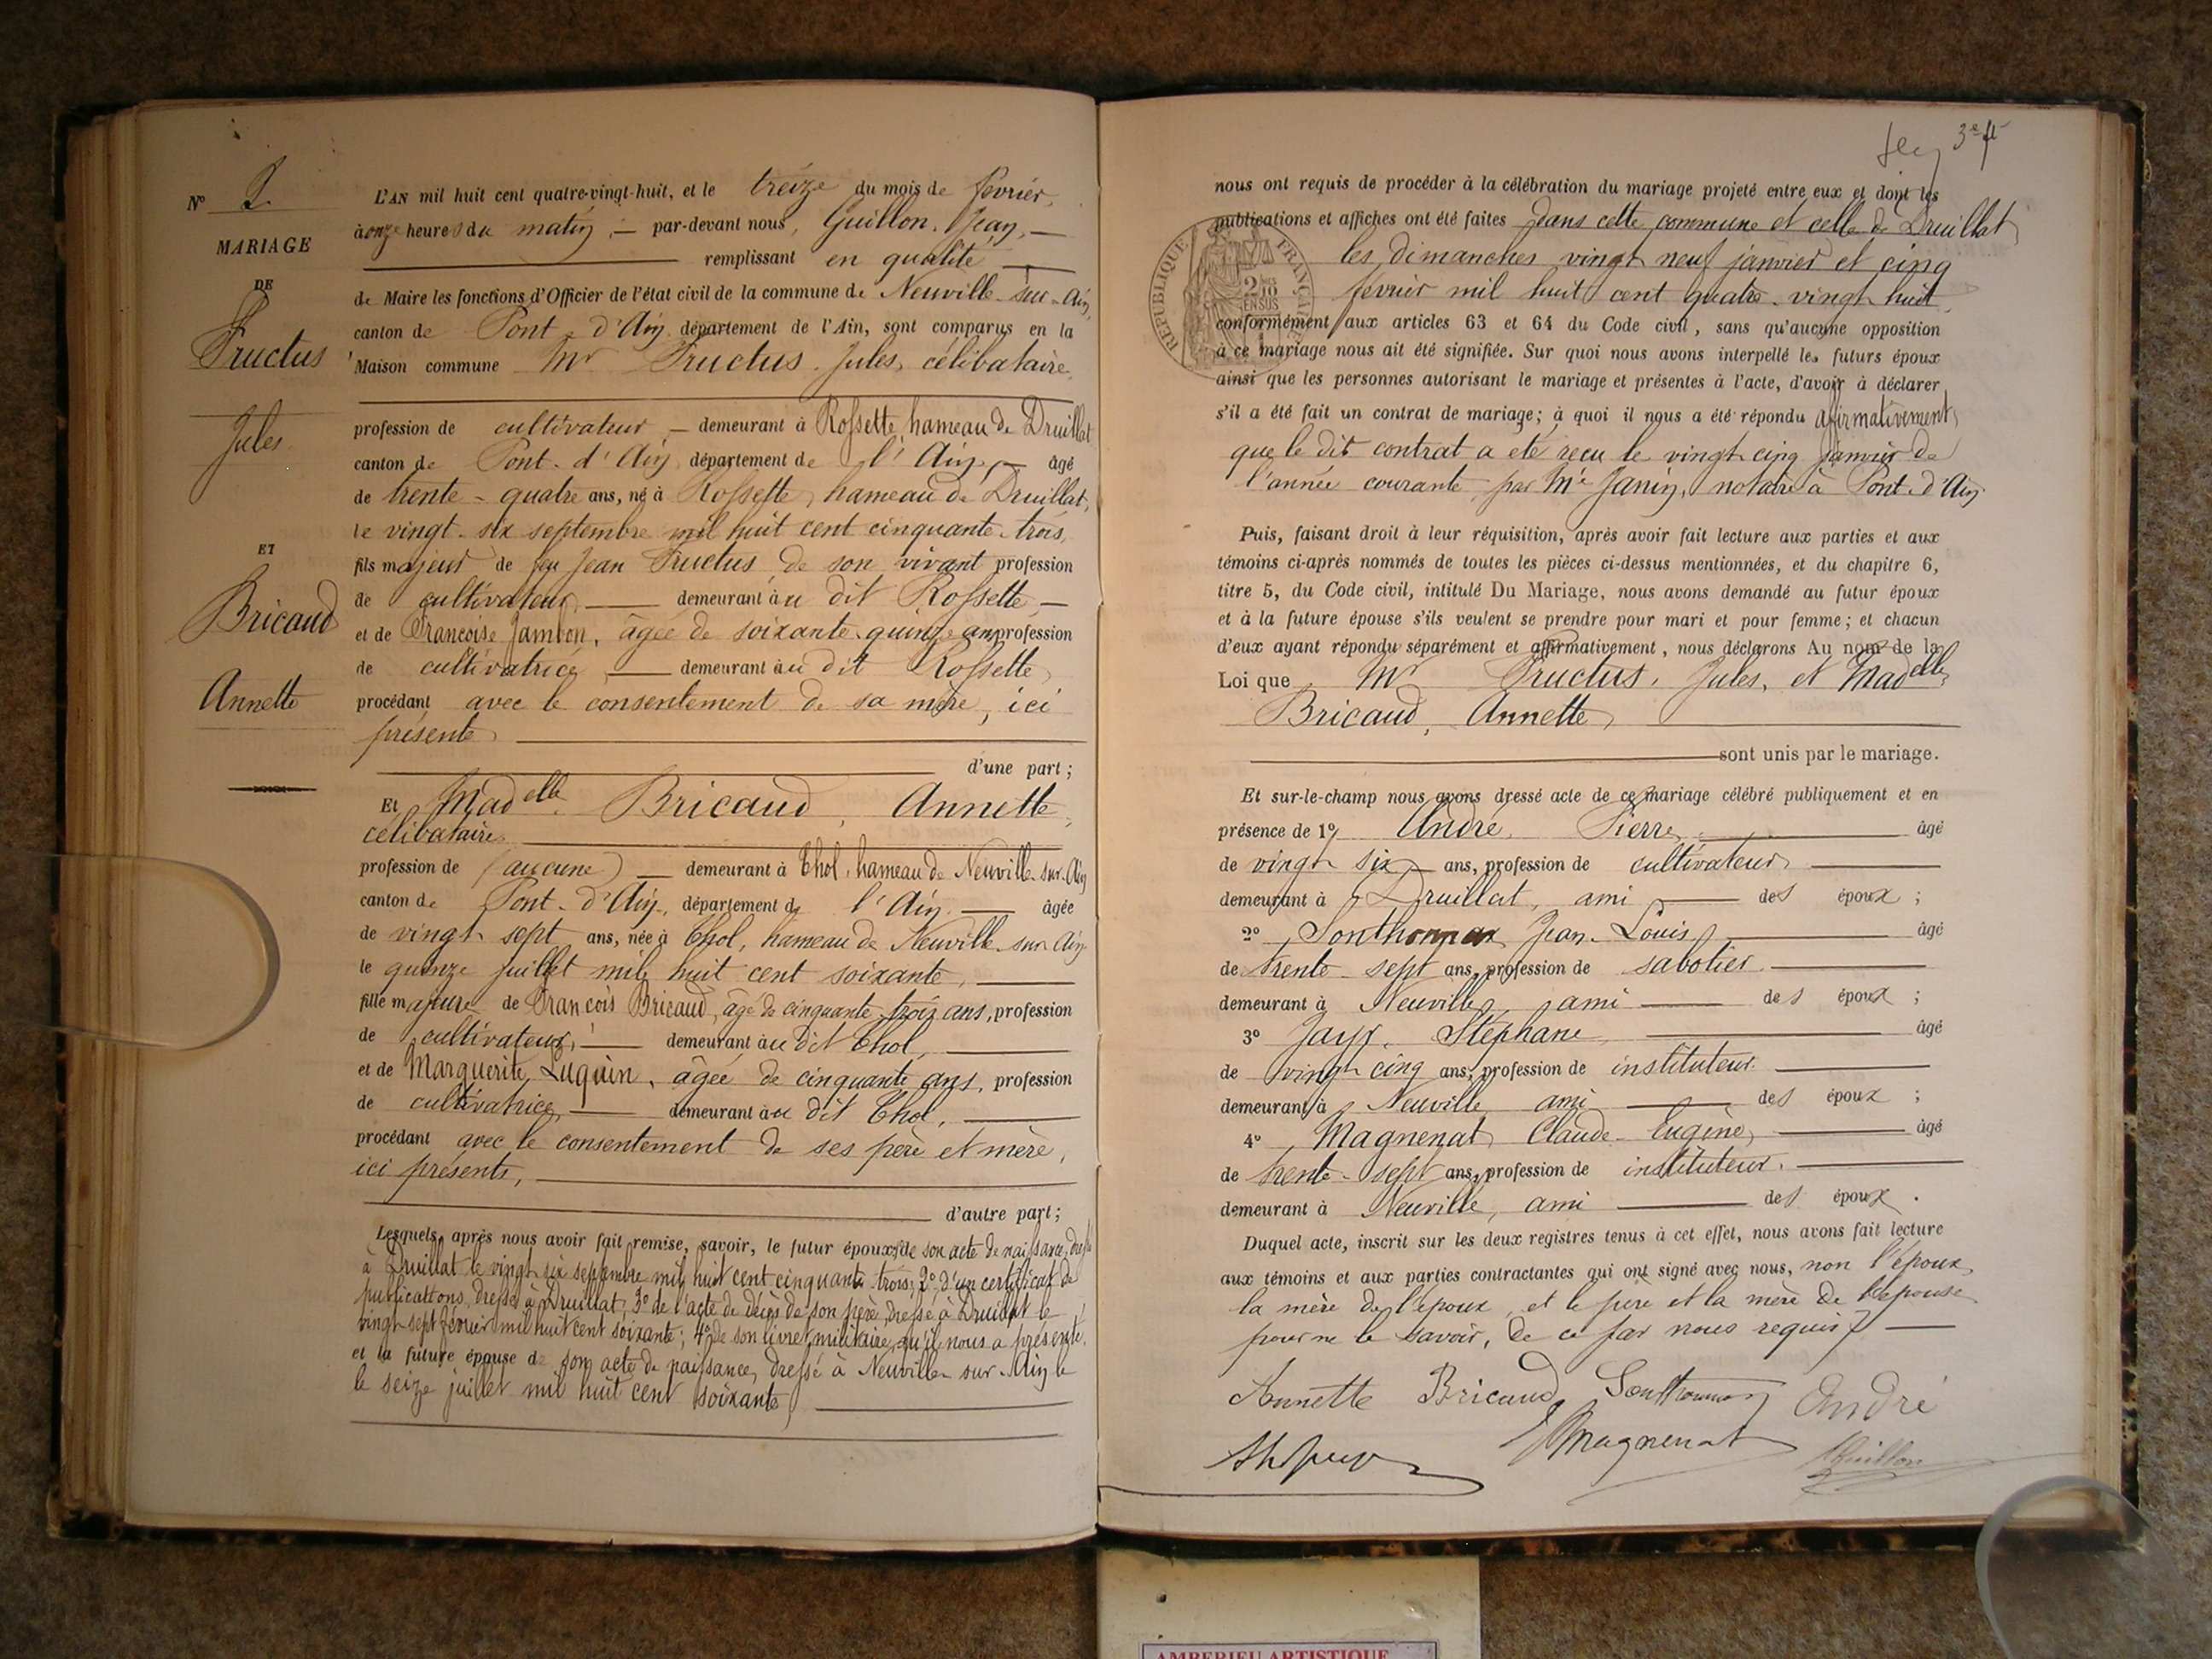 N° 2
MARIAGE
DE
Fructus
Jules
ET
Bricaud
Annette
L'AN mil huit cent quatre-vingt-huit, et le treize du mois de février,
à onze heures du matin, — par-devant nous, Guillon, Jean, —
remplissant en qualité
de Maire les fonctions d'Officier de l'état civil de la commune de Neuville-sur-Ain,
canton de Pont-d'Ain département de l'Ain, sont comparus en la
Maison commune Mr Fructus, Jules, célibataire,
profession de cultivateur — demeurant à Rossette hameau de Druillat
canton de Pont-d'Ain département de l'Ain, — âgé
de trente-quatre ans, né à Rossette, hameau de Druillat,
le vingt-six septembre mil huit cent cinquante-trois,
fils majeur de feu Jean Fructus, de son vivant profession
de cultivateur, — demeurant au dit Rossette —
et de Françoise Jambon, âgée de soixante-quinze ans profession
de cultivatrice, — demeurant au dit Rossette,
procédant avec le consentement de sa mère, ici
présente,
d'une part;
Et Madelle Bricaud, Annette,
célibataire,
profession de (aucune) — demeurant à Thol, hameau de Neuville-sur-Ain
canton de Pont-d'Ain, département de l'Ain — âgée
de vingt-sept ans, née à Thol, hameau de Neuville-sur-Ain
le quinze juillet mil huit cent soixante,
fille majeure de François Bricaud, âgé de cinquante-trois ans, profession
de cultivateur, — demeurant au dit Thol,
et de Marguerite Luquin, âgée de cinquante ans, profession
de cultivatrice, — demeurant au dit Thol,
procédant avec le consentement de ses père et mère,
ici présents,
d'autre part;
Lesquels, après nous avoir fait remise, savoir, le futur époux, 1° de son acte de naissance, dressé
à Druillat le vingt six septembre mil huit cent cinquante-trois; 2° d'un certificat de
publications, dressé à Druillat, 3° de l'acte de décès de son père, dressé à Druillat le
vingt-sept février mil huit cent soixante; 4° de son livret militaire, qu'il nous a présenté,
et la future épouse de son acte de naissance, dressé à Neuville-sur-Ain le
le seize juillet mil huit cent soixante,
3e ft
nous ont requis de procéder à la célébration du mariage projeté entre eux et dont les
publications et affiches ont été faites dans cette commune et celle de Druillat
les dimanches vingt neuf janvier et cinq
février mil huit cent quatre-vingt-huit
REPUBLIQUE FRANÇAISE
conformément aux articles 63 et 64 du Code civil, sans qu'aucune opposition
à ce mariage nous ait été signifiée. Sur quoi nous avons interpellé les futurs époux
ainsi que les personnes autorisant le mariage et présentes à l'acte, d'avoir à déclarer
s'il a été fait un contrat de mariage; à quoi il nous a été répondu afirmativement,
que le dit contrat a été reçu le vingt-cinq janvier de
l'année courante par Me Janin, notaire à Pont-d'Ain
Puis, faisant droit à leur réquisition, après avoir fait lecture aux parties et aux
témoins ci-après nommés de toutes les pièces ci-dessus mentionnées, et du chapitre 6,
titre 5, du Code civil, intitulé Du Mariage, nous avons demandé au futur époux
et à la future épouse s'ils veulent se prendre pour mari et pour femme; et chacun
d'eux ayant répondu séparément et affirmativement, nous déclarons Au nom de la
Loi que Mr Fructus, Jules, et Madelle
Bricaud, Annette,
sont unis par le mariage.
Et sur-le-champ nous avons dressé acte de ce mariage célébré publiquement et en
présence de 1° André, Pierre, âgé
de vingt-six ans, profession de cultivateur
demeurant à Druillat, ami des époux;
2° Sonthonnax Jean-Louis, âgé
de trente-sept ans, profession de sabotier
demeurant à Neuville, ami des époux;
3° Jayr, Stéphane âgé
de vingt-cinq ans, profession de instituteur
demeurant à Neuville ami des époux;
4° Magnenat Claude-Eugène, âgé
de trente-sept ans, profession de instituteur,
demeurant à Neuville, ami des époux.
Duquel acte, inscrit sur les deux registres tenus à cet effet, nous avons fait lecture
aux témoins et aux parties contractantes qui ont signé avec nous, non l'époux,
la mère de l'époux, et le père et la mère de l'épouse
pour ne le savoir, de ce par nous requis
Annette Bricaud Sonthonnax André
St Jayr Magnenat Guillon
AMBERIEU ARTISTIQUE